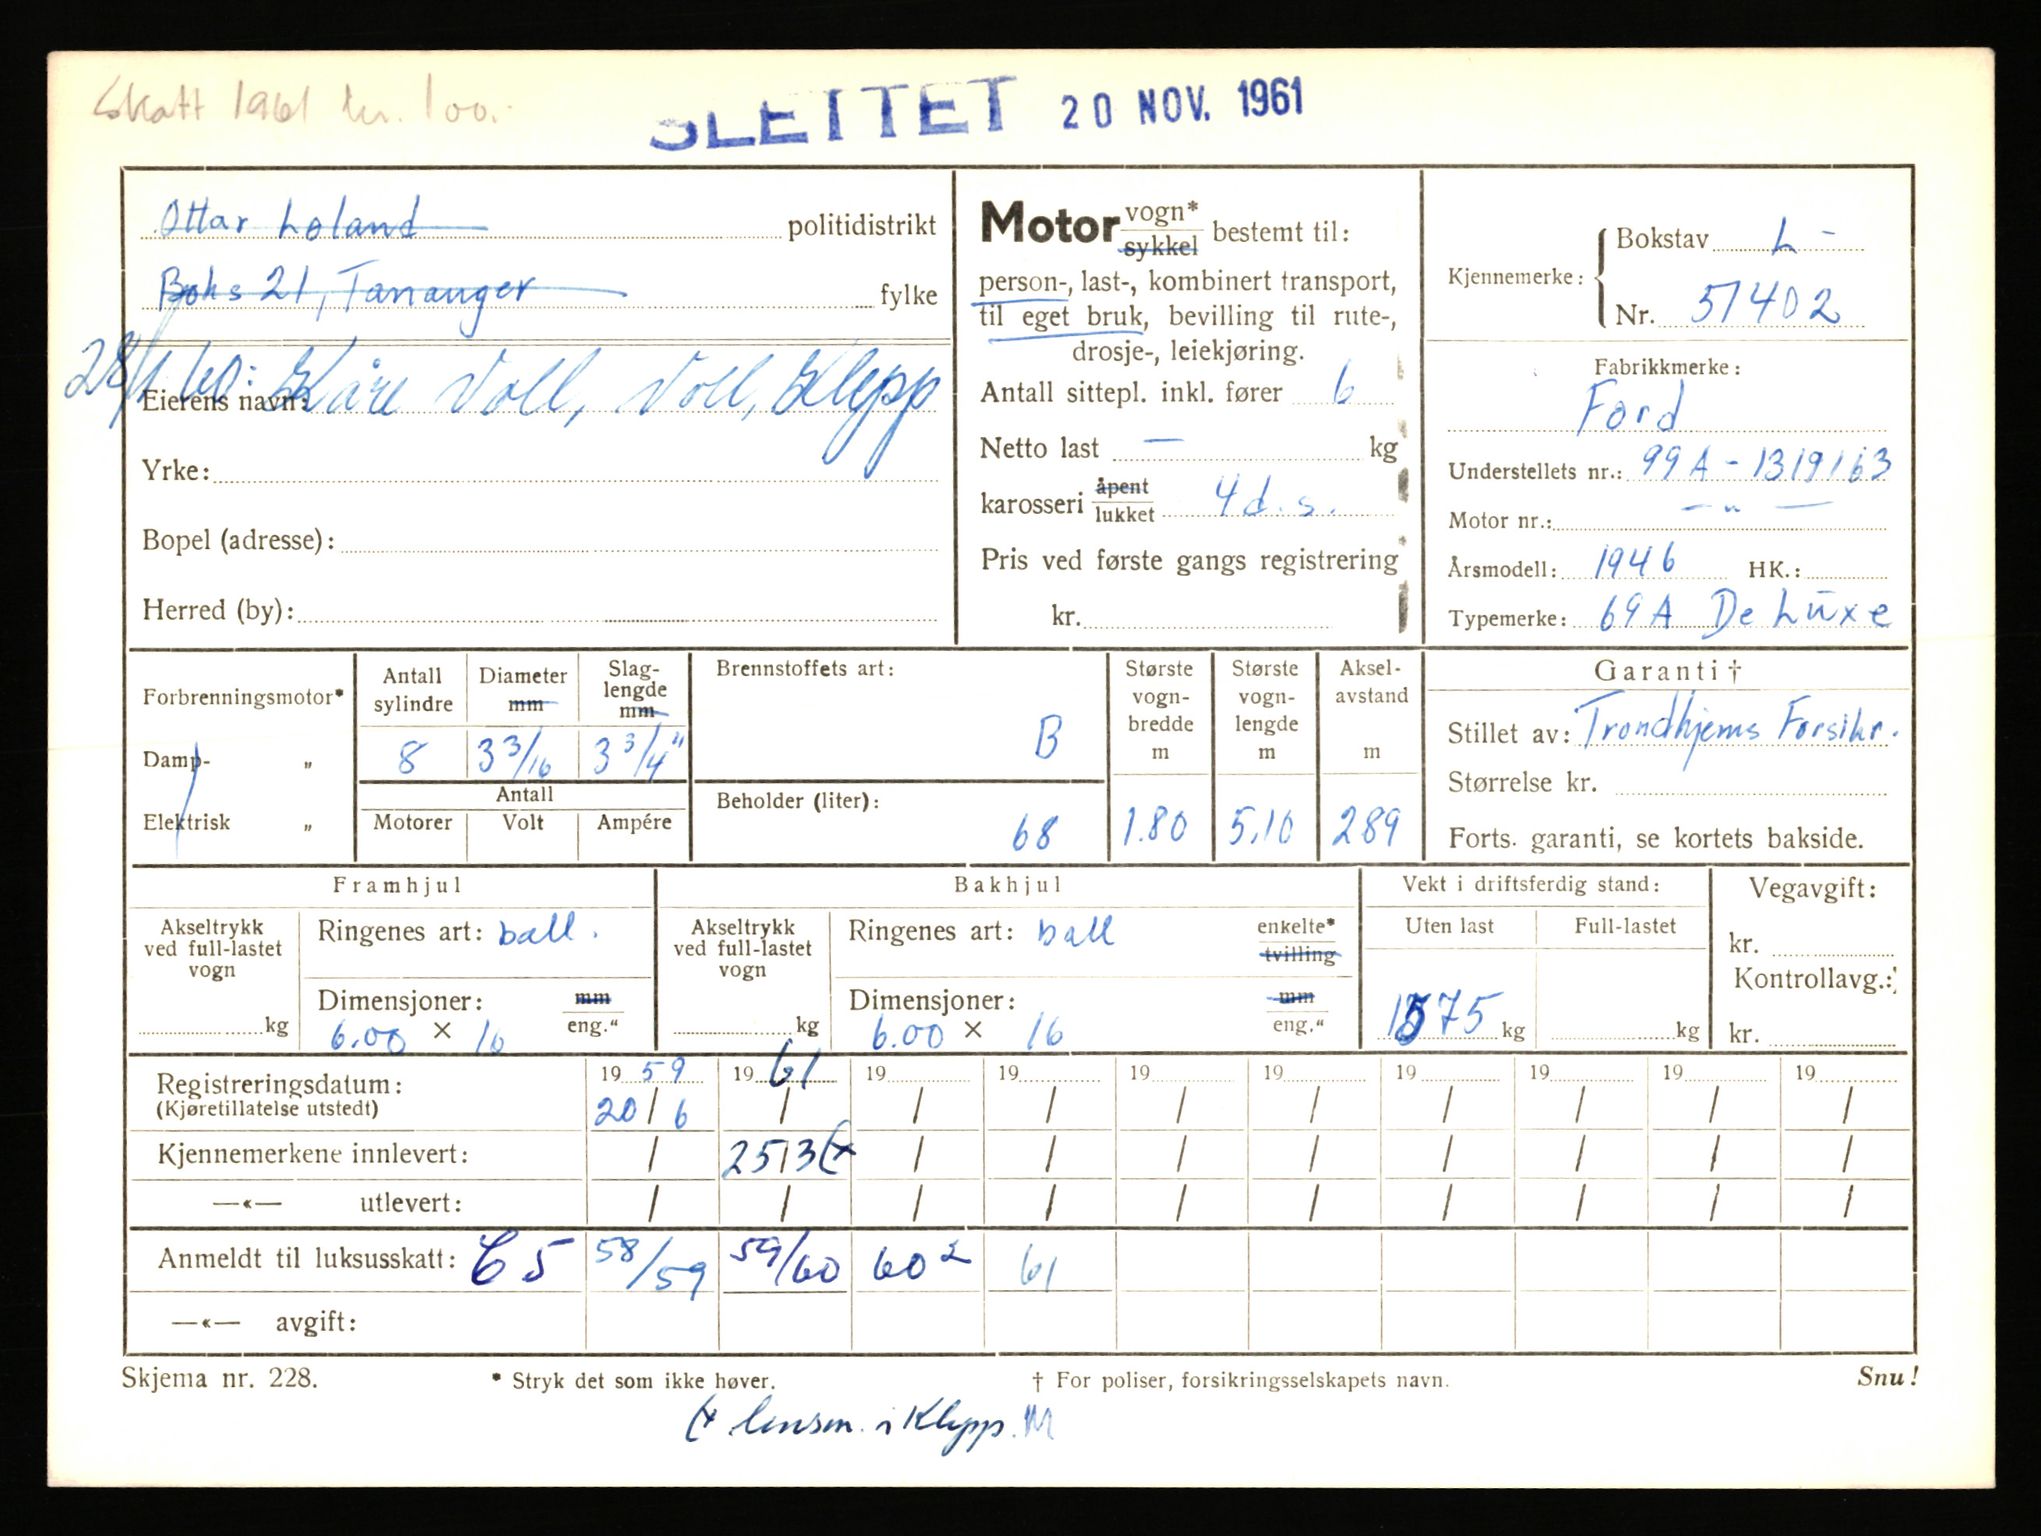 Skatt 1961 kr. 100.-
SLETTET 20 NOV. 1961
Ottar Loland politidistrikt
Boks 21, Tananger fylke
28/1 60: Kåre Voll, Voll, Klepp
Eierens navn:
Yrke:
Bopel (adresse):
Herred (by):
Motor vogn* sykkel bestemt til:
person-, last-, kombinert transport,
til eget bruk, bevilling til rute-,
drosje-, leiekjøring.
Antall sittepl. inkl. fører 6
Netto last — kg
karosseri åpent lukket 4 d.s.
Pris ved første gangs registrering
kr.
Kjennemerke: Bokstav L -
Nr. 51402
Fabrikkmerke:
Ford
Understellets nr.: 99A - 1319163
Motor nr.: — " —
Årsmodell: 1946 HK.:
Typemerke: 69A De Luxe
Forbrenningsmotor*
Damp- „
Elektrisk „
Antall sylindre 8
Diameter mm 3 3/16
Slag-lengde mm 3 3/4"
Antall
Motorer Volt Ampére
Brennstoffets art:
B
Beholder (liter):
68
Største vogn-bredde m 1.80
Største vogn-lengde m 5.10
Aksel-avstand m 289
Garanti †
Stillet av: Trondhjems Forsikr.
Størrelse kr.
Forts. garanti, se kortets bakside.
Framhjul
Akseltrykk ved full-lastet vogn kg
Ringenes art: ball.
Dimensjoner: mm eng."
6.00 × 16
Bakhjul
Akseltrykk ved full-lastet vogn kg
Ringenes art: ball enkelte* tvilling
Dimensjoner: mm eng."
6.00 × 16
Vekt i driftsferdig stand:
Uten last Full-lastet
1575 kg kg
Vegavgift:
kr.
Kontrollavg.:
kr.
Registreringsdatum: 19 59 19 61 19 19 19 19 19 19 19 19
(Kjøretillatelse utstedt) 20/6 / / / / / / / / /
Kjennemerkene innlevert: / 25/3 (x / / / / / / / /
—«— utlevert: / / / / / / / / / /
Anmeldt til luksusskatt: C5 58/59 59/60 60² 61
—«— avgift:
Skjema nr. 228. * Stryk det som ikke høver. † For poliser, forsikringsselskapets navn. Snu!
(x lensm. i Klepp. M